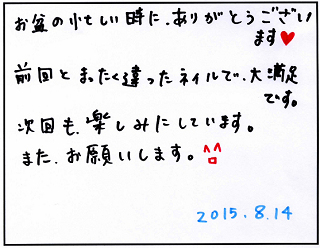 お盆の忙しい時に、ありがとうござい
ます♥
前回とまったく違ったネイルで、大満足
です。
次回も、楽しみにしています。
また、お願いします。^^
2015.8.14